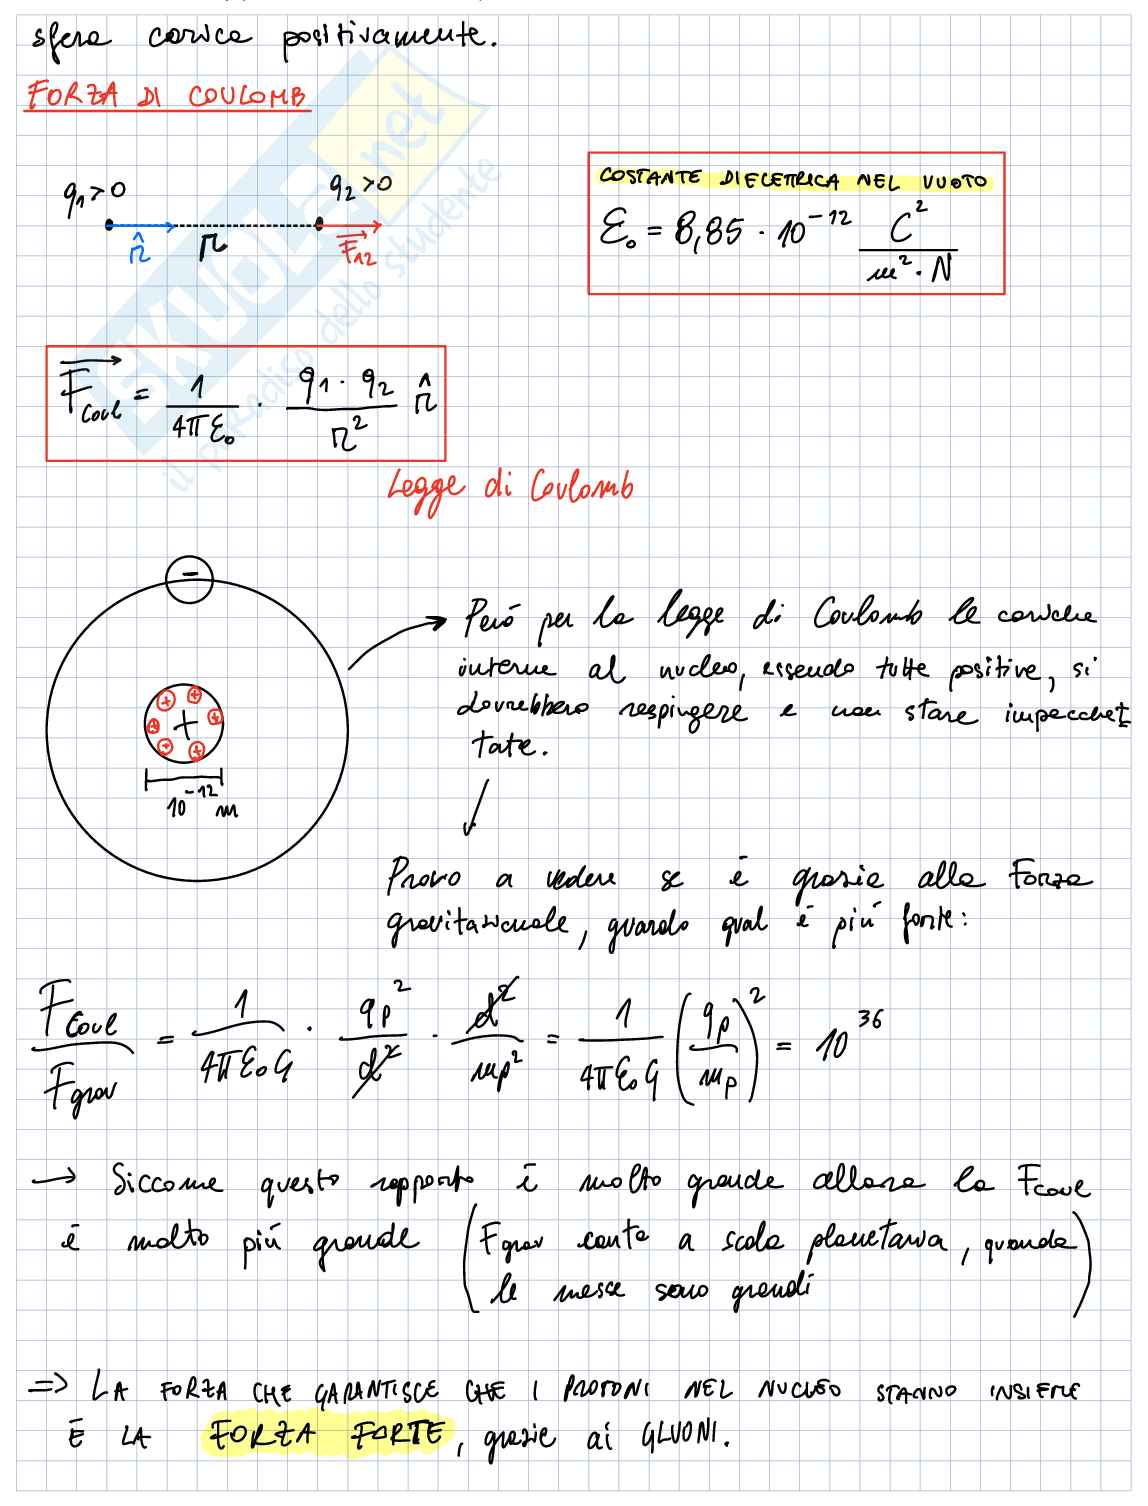 sfera carica positivamente.
FORZA DI COULOMB
q₁>0
q₂>0
r̂
r
F₁₂
COSTANTE DIELETTRICA NEL VUOTO
ε₀ = 8,85 · 10⁻¹² C² / m² · N
F Coul = 1 / 4πε₀ · q₁ · q₂ / r² r̂
Legge di Coulomb
-
+
+ + + + + +
10⁻¹² m
Però per la legge di Coulomb le cariche
interne al nucleo, essendo tutte positive, si
dovrebbero respingere e non stare impacchet
tate.
Provo a vedere se è grazie alla Forza
gravitazionale, guardo qual è più forte:
F Coul / F grav = 1 / 4πε₀G · qp² / d² · d² / mp² = 1 / 4πε₀G (qp / mp)² = 10³⁶
→ Siccome questo rapporto è molto grande allora la Fcoul
è molto più grande (Fgrav conta a scala planetaria, quando
le masse sono grandi)
=> LA FORZA CHE GARANTISCE CHE I PROTONI NEL NUCLEO STANNO INSIEME
È LA FORZA FORTE, grazie ai GLUONI.
SKUOLA.net
il paradiso dello studente